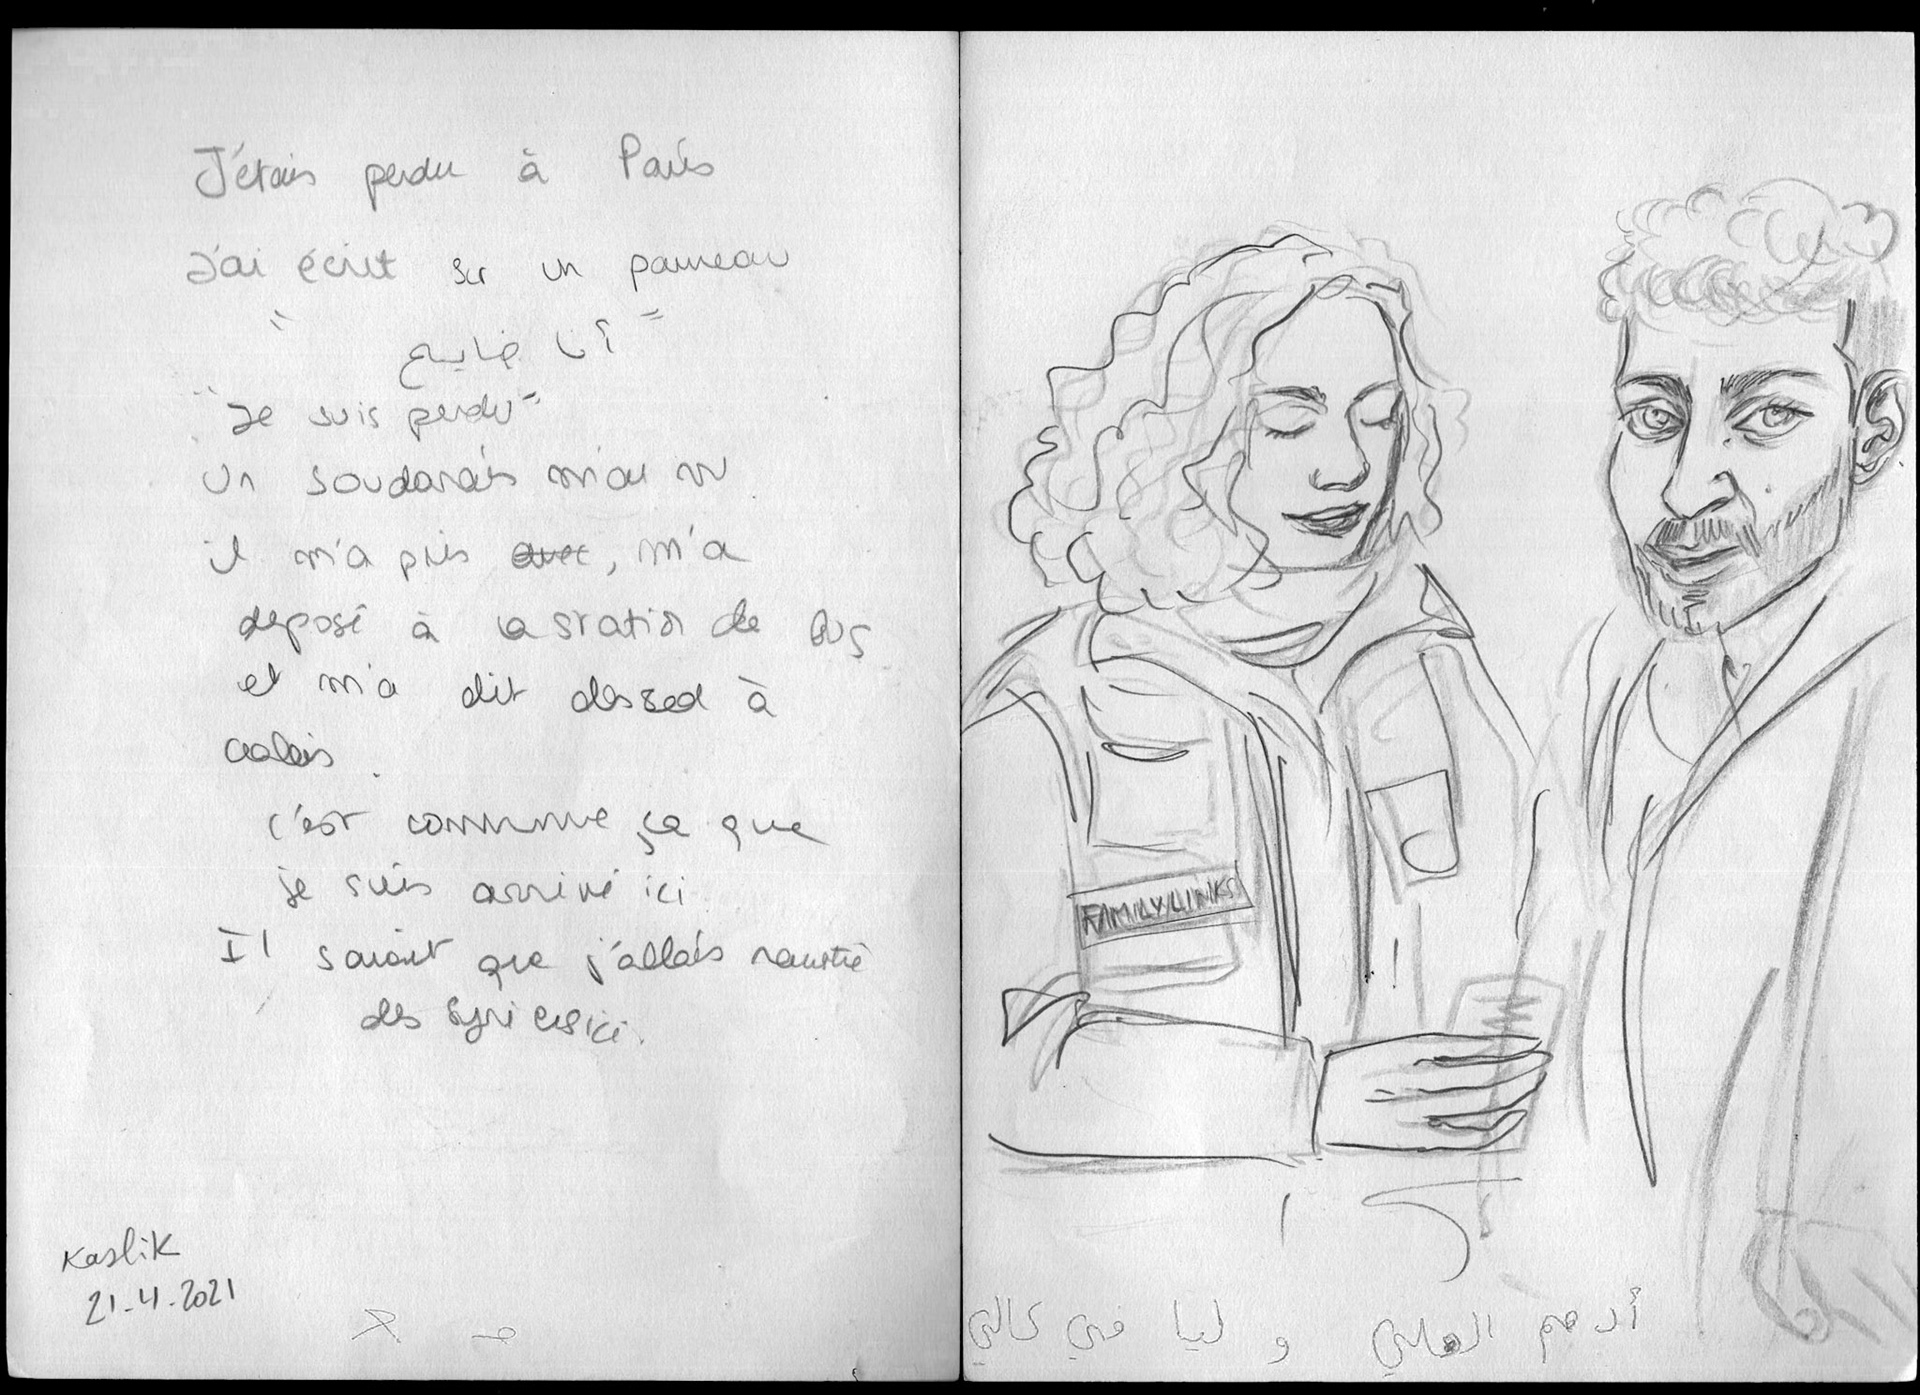 J'étais perdu à Paris
J'ai écrit sur un panneau
" أنا ضايع "
"Je suis perdu"
un soudanais m'a vu
il m'a pris avec, m'a
deposé à la station de Bus
et m'a dit à
calais.
c'est comme ça que
je suis arrivé ici
Il savait que j'allais
des ici.
Kaslik
21-4-2021
FAMILY LINKS
أدهم و ليا في كالي